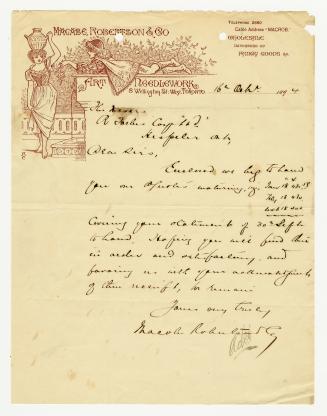 MACABE, ROBERTSON & Co
ART NEEDLEWORK
8 Wellington St. West, TORONTO.
TELEPHONE 2860
Cable Address "MACROB"
WHOLESALE
IMPORTERS OF
FANCY GOODS &c.
16th Oct 189
R Forbes Coy Ltd
Hespeler Ont
Dear Sirs,
Enclosed we beg to hand
you our
Covering your statement of 30th Sept
to hand. Hoping you will find this
in order and satisfactory, and
favoring us with your acknowledgments
of their receipt, we remain
Yours very truly,
Macabe Robertson & Co